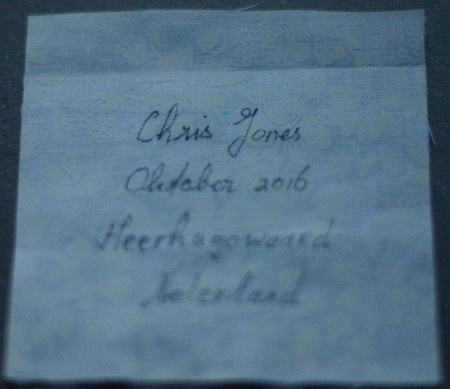 Chris Jones
Oktober 2016
Heerhugowaard
Nederland